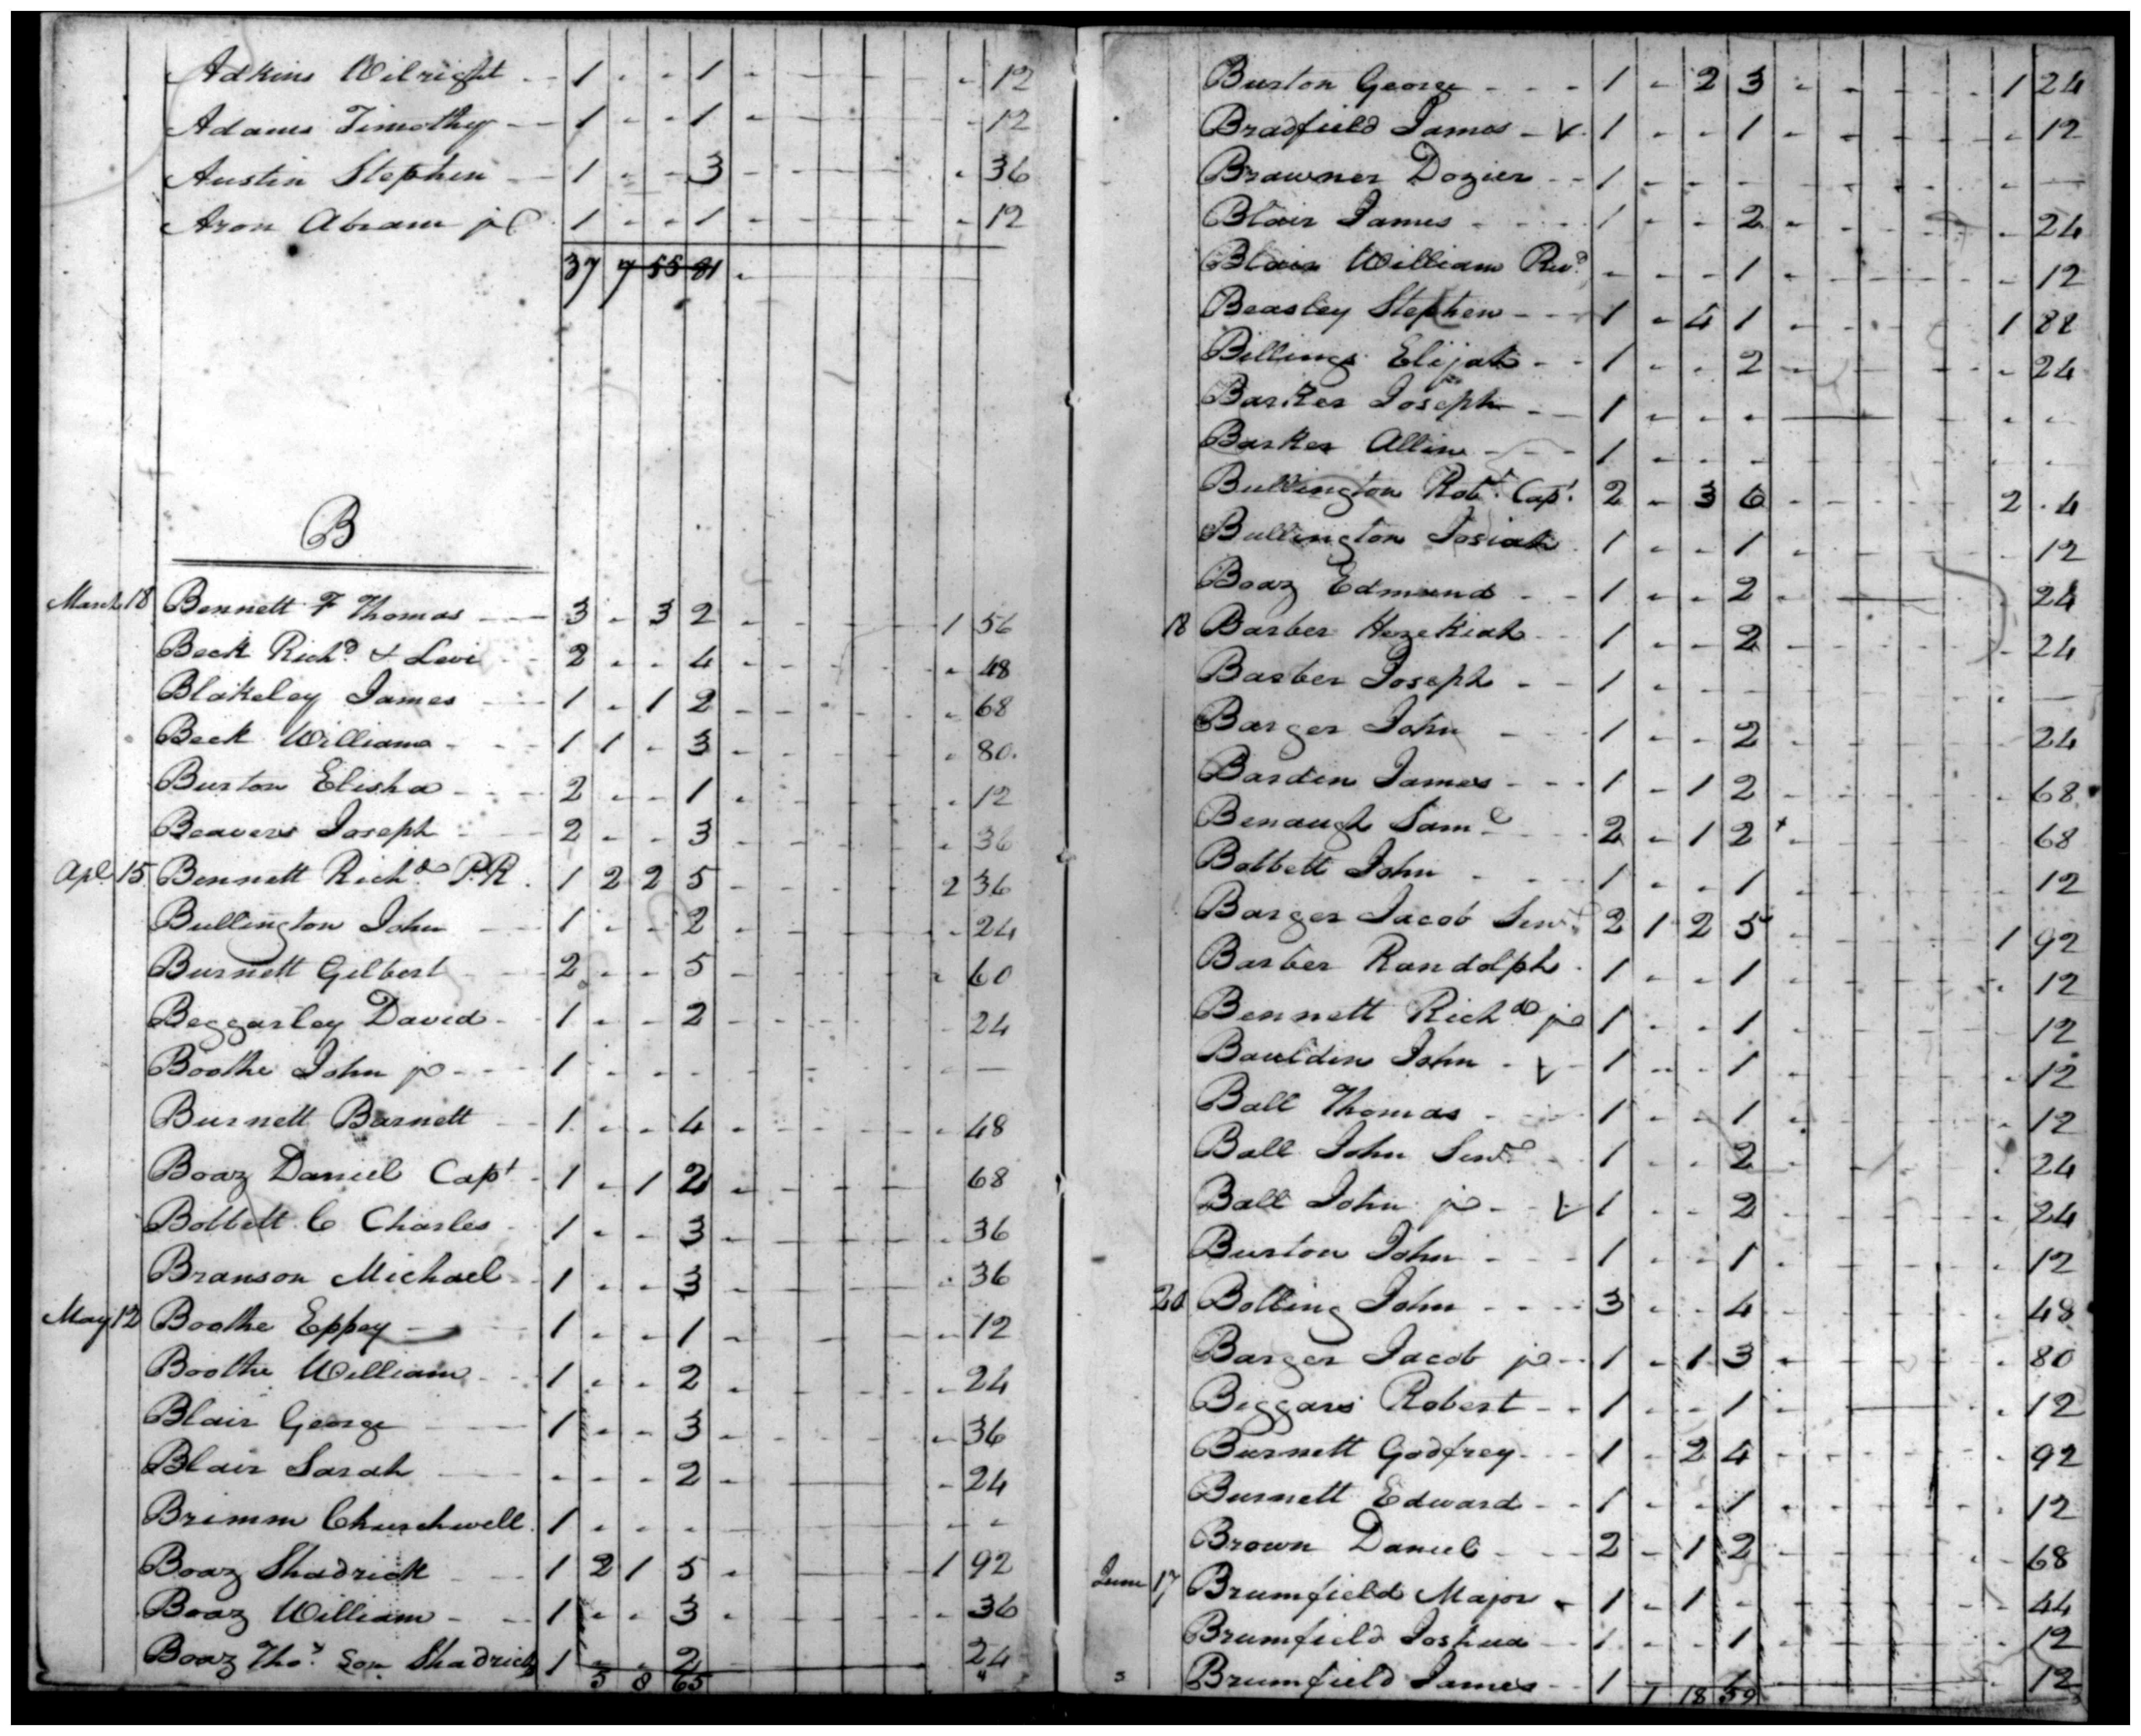 Adkins Wilright - - 1 - - 1 - - - - - - 12
Adams Timothy - - 1 - - 1 - - - - - - 12
Austin Stephen - - 1 - - 3 - - - - - - 36
Aron Abram jr 1 - - 1 - - - - - - 12
37 7 55 81 -
B
March 18 Bennett F Thomas - - 3 - 3 2 - - - - - 1 56
Beck Richd & Levi - 2 - - 4 - - - - - - 48
Blakeley James - - 1 - 1 2 - - - - - - 68
Beck William - - 1 1 - 3 - - - - - - 80.
Burton Elisha - - 2 - - 1 - - - - - - 12
Beavers Joseph - - 2 - - 3 - - - - - - 36
Apl 15 Bennett Richd PR. 1 2 2 5 - - - - - 2 36
Bullington John - 1 - - 2 - - - - - - 24
Burnett Gilbert - - 2 - - 5 - - - - - - 60
Beggarley David - - 1 - - 2 - - - - - 24
Boothe John jr - - - 1 - - - - - - - - - —
Burnett Barnett - - 1 - - 4 - - - - - - 48
Boaz Daniel Capt - 1 - 1 2 - - - - 68
Bobbett C Charles - 1 - - 3 - - - - - - 36
Branson Michael - 1 - - 3 - - - - - - 36
May 12 Boothe Eppey - - 1 - - 1 - - - - - - 12
Boothe William - - 1 - - 2 - - - - - - 24
Blair George - - 1 - - 3 - - - - - - 36
Blair Sarah - - - - - 2 - - - - - - 24
Brimm Churchwell 1 - - - - - - - - - -
Boaz Shadrick - - 1 2 1 5 - - - - - 1 92
Boaz William - - 1 - - 3 - - - - - - 36
Boaz Thos Son Shadrick 1 - - 2 - - - - 24
5 8 65
Burton George - - - 1 - 2 3 - - - - - 1 24
Bradfield James - V. 1 - - 1 - - - - - - 12
Brawner Dozier - - 1 - - - - - - - - - —
Blair James - - - 1 - - 2 - - - - - - 24
Blair William Revd - - - 1 - - - - - - 12
Beasley Stephen - - - 1 - 4 1 - - - - - 1 88
Billings Elijah - - 1 - - 2 - - - - - - 24
Barker Joseph - - 1 - - - - - - - - - -
Barker Allin - - - 1 - - - - - - - - - -
Bullington Robt. Capt. 2 - 3 6 - - - - - 2 . 4
Bullington Josiah . 1 - - 1 - - - - - - 12
Boaz Edmund - - 1 - - 2 - - - - - 24
18 Barber Hezekiah - - 1 - - 2 - - - - - - 24
Barber Joseph - - 1 - - - - - - - - - —
Barger John - - 1 - - 2 - - - - - - 24
Barden James - - - 1 - 1 2 - - - - - - 68
Benaugh Saml - - - 2 - 1 2 + - - - - 68
Bobbett John - - - 1 - - 1 - - - - - - 12
Barger Jacob Senr. 2 1 2 5 - - - - - 1 92
Barber Randolph . 1 - - 1 - - - - - - 12
Bennett Richd jr 1 - - 1 - - - - - - 12
Bauldin John - V - 1 - - 1 - - - - - - 12
Ball Thomas - - - 1 - - 1 - - - - - - 12
Ball John Senr - 1 - - 2 - - - - - - 24
Ball John jr - - V 1 - - 2 - - - - - - 24
Burton John - - - 1 - - 1 - - - - - - 12
20 Bolling John - - - - 3 - - 4 - - - - - - 48
Barger Jacob jr - - 1 - 1 3 - - - - - - 80
Beggars Robert - - 1 - - 1 - - - - - - 12
Burnett Godfrey - - - 1 - 2 4 - - - - - - 92
Burnett Edward - - 1 - - 1 - - - - - - 12
Brown Daniel - - - 2 - 1 2 - - - - - - 68
June 17 Brumfield Major - 1 - 1 - - - - - - - 44
Brumfield Joshua - - 1 - - 1 - - - - - - 12
Brumfield James - - 1 - - 1 - - - - - - 12
1 18 59